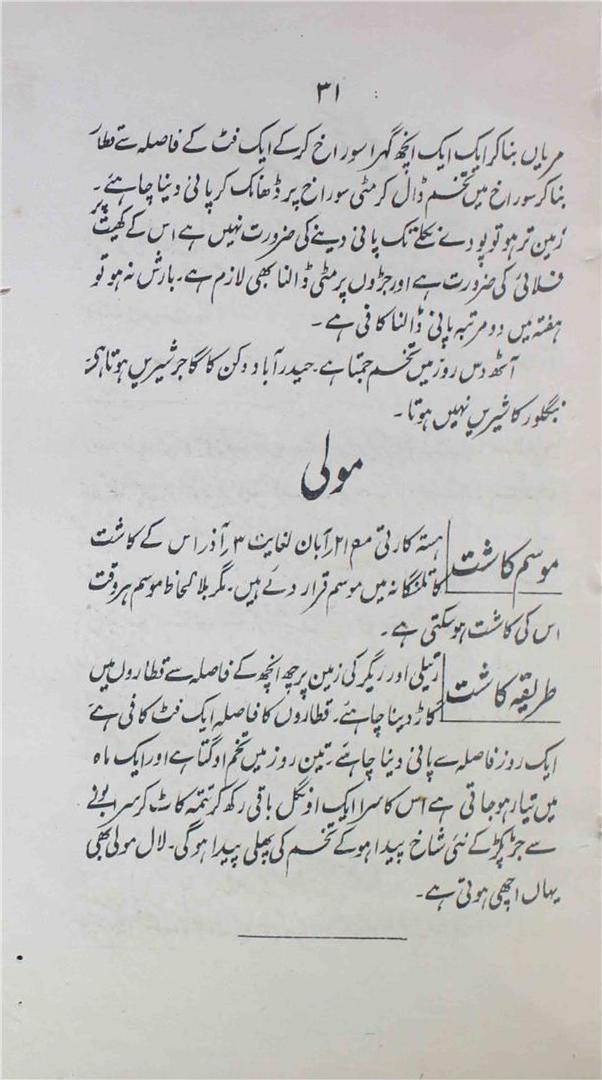 ۳۱
مریاں بناکر ایک ایک انچھ گہرا سوراخ کرکے ایک فٹ کے فاصلہ سے قطار
بناکر سوراخ میں تخم ڈال کر مٹی سوراخ پر ڈھانک کر پانی دینا چاہئے۔
زمین تر ہو تو پودے نکلے تک پانی دینے کی ضرورت نہیں ہے اس کے کھیت پر
فلائی کی ضرورت ہے اور جڑوں پر مٹی ڈالنا بھی لازم ہے۔ بارش نہ ہو تو
ہفتہ میں دو مرتبہ پانی ڈالنا کافی ہے۔
آٹھ دس روز میں تخم جمتا ہے۔ حیدرآباد دکن کا گاجر شیریں ہوتا ہی
بنگلور کا شیریں نہیں ہوتا۔
مولی
موسم کاشت
ہستہ کارتی مع ۲۱ر آبان لغایت ۳ر آذر اس کے کاشت
کا تلنگانہ میں موسم قرار دئے ہیں۔ مگر بلا لحاظ موسم ہر وقت
اس کی کاشت ہوسکتی ہے۔
طریقہ کاشت
رتیلی اور ریگر کی زمین پر چھ انچھ کے فاصلہ سے قطاروں میں
گاڑ دینا چاہئے۔ قطاروں کا فاصلہ ایک فٹ کافی ہے
ایک روز فاصلہ سے پانی دینا چاہئے۔ تین روز میں تخم اوگتا ہے اور ایک ماہ
میں تیار ہوجاتی ہے اس کا سرا ایک اونگل باقی رکھ کر تمہ کاٹ کر سرا بونے
سے جڑ پکڑ کے نئی شاخ پیدا ہو کے تخم کی پھلی پیدا ہوگی۔ لال مولی بھی
یہاں اچھی ہوتی ہے۔